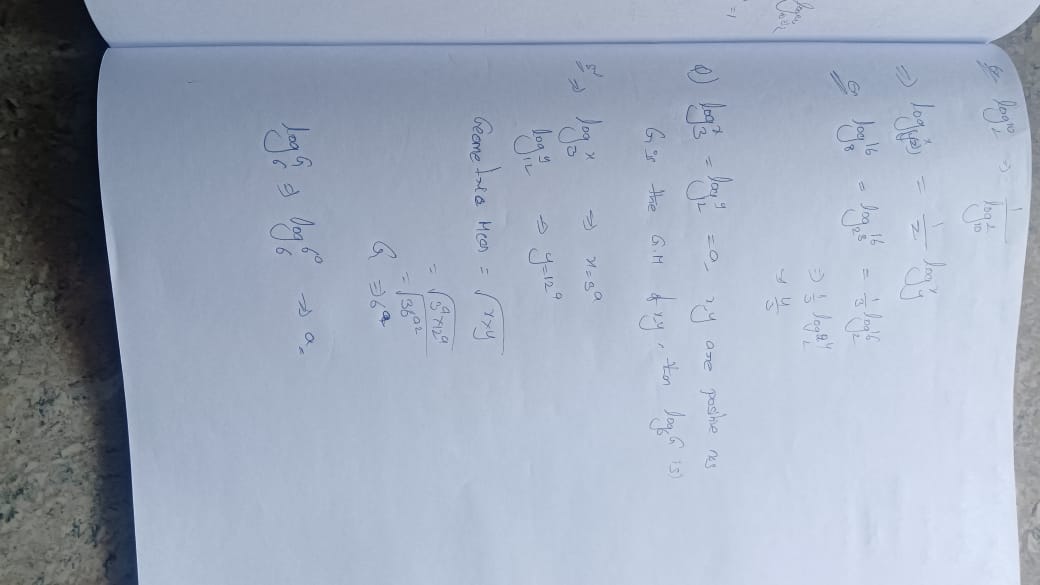 log₁₀2
= 1
Ex log₂10 ⇒ 1/log₁₀2
⇒ log_(y^z) x = 1/z log_y x
Ex log₈16 = log_2³ 16 = 1/3 log₂16
⇒ 1/3 log₂2⁴
⇒ 4/3
Q) log₃x = log₁₂y = a, x,y are positive nos
G is the G.M of x,y. then log₆G is)
Solⁿ ⇒ log₃x ⇒ x=3ᵃ
log₁₂y ⇒ y=12ᵃ
Geometric Mean = √x×y
= √3ᵃ×12ᵃ
= √36
G ⇒ 6ᵃ
log₆G ⇒ log₆6ᵃ ⇒ a